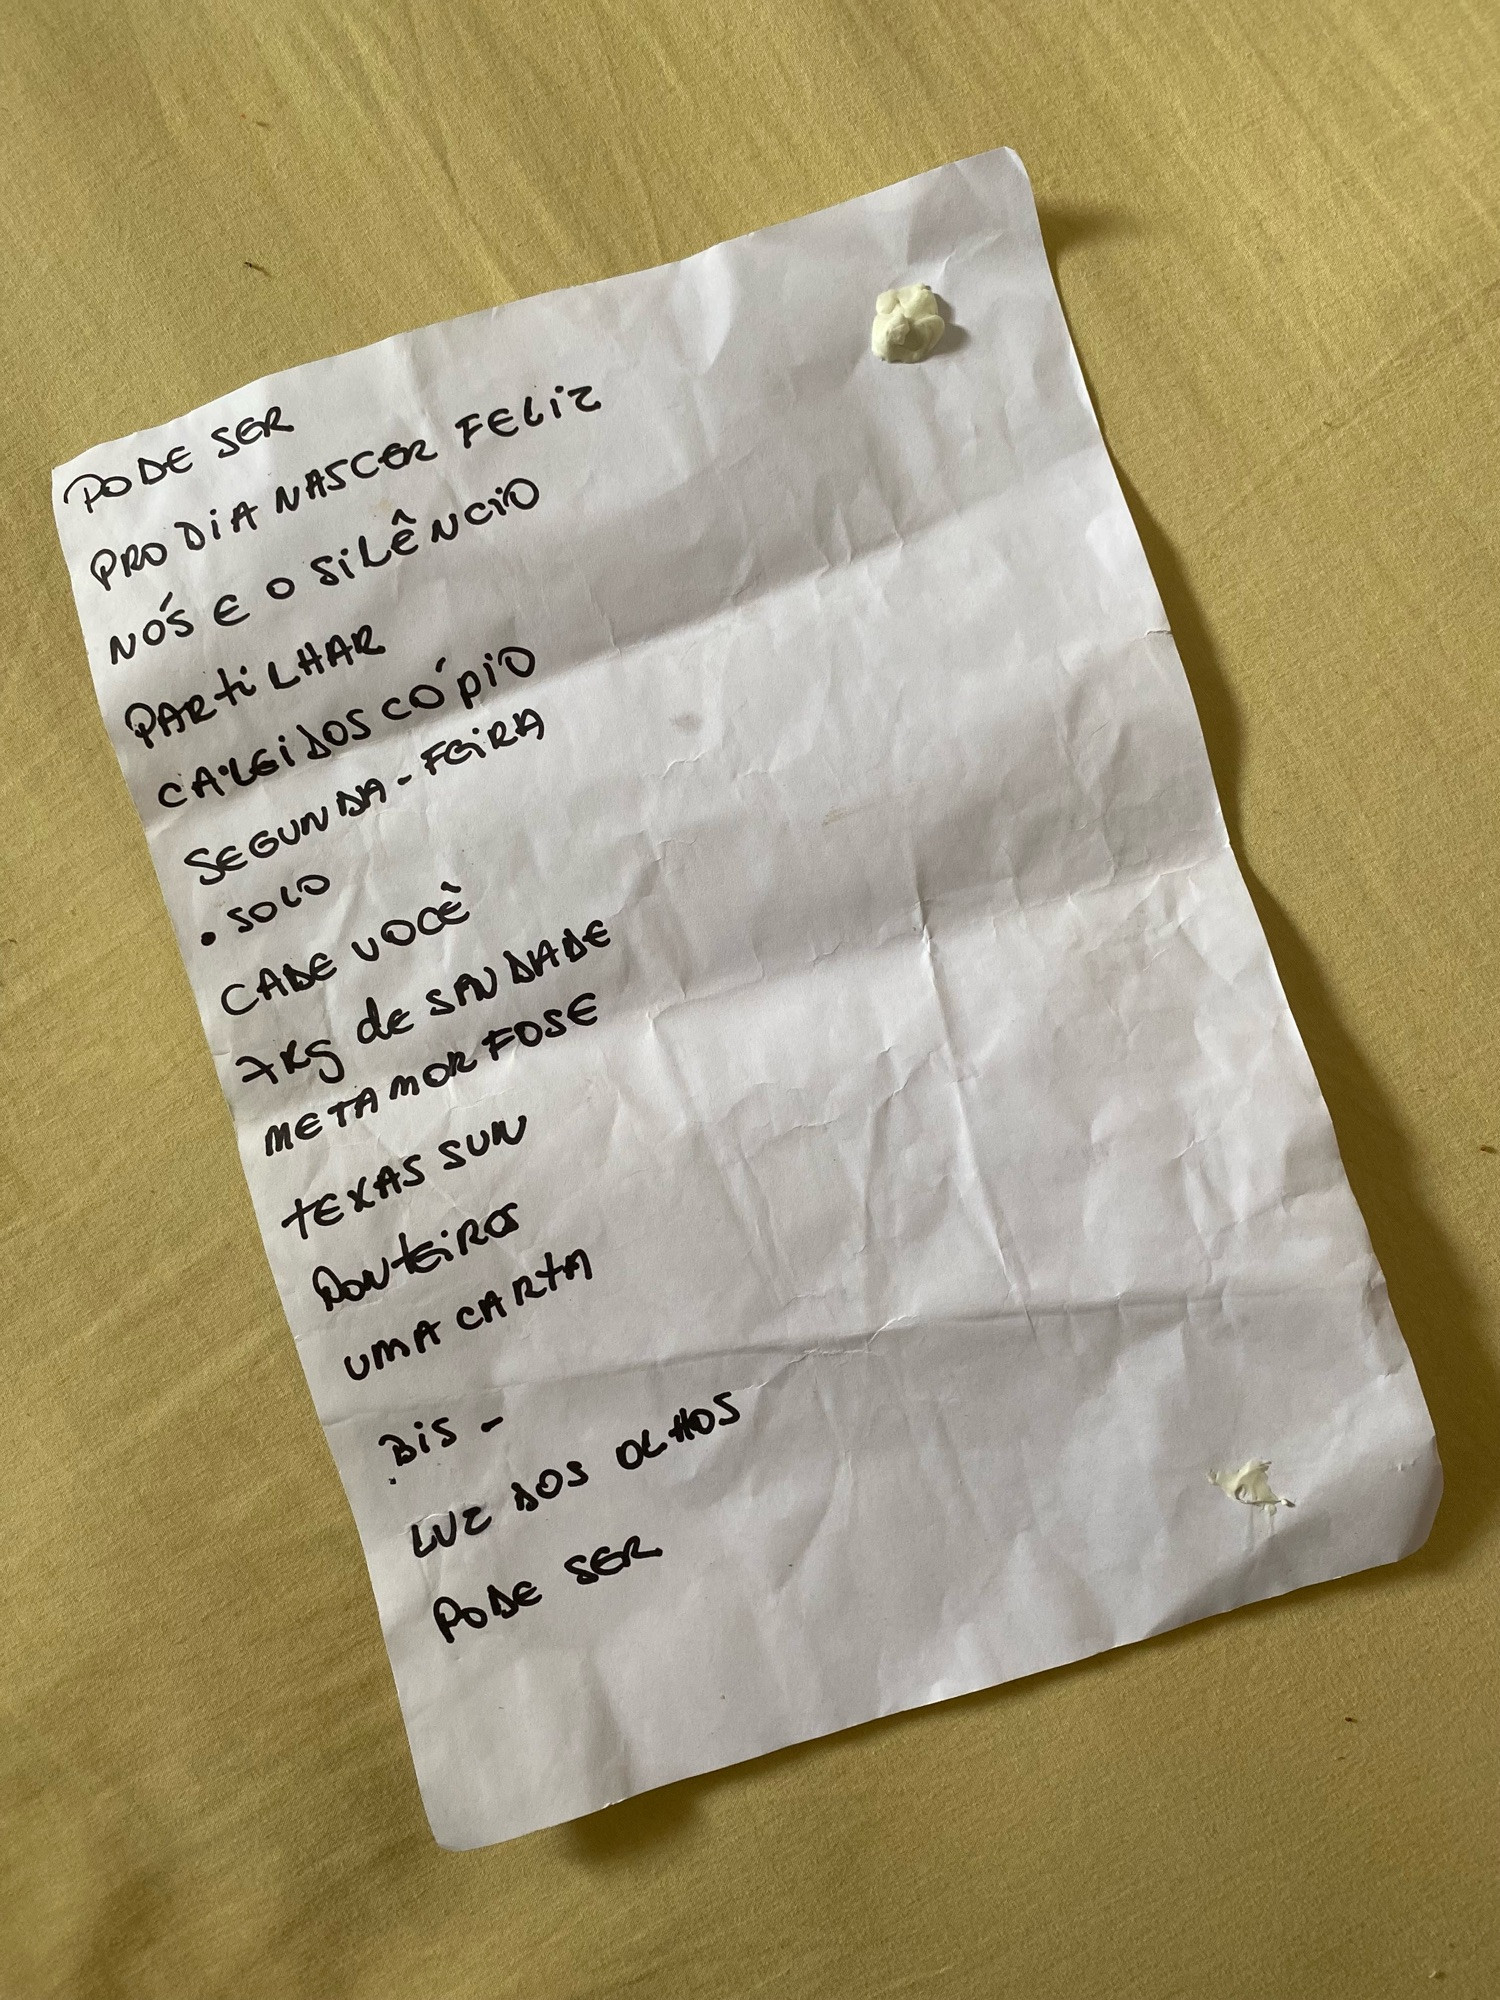 PODE SER
PRO DiA NASCER FELiZ
NÓS E O SiLÊNCiO
PARtiLHAR
CALEiDOSCÓPiO
SEGUNDA-FEiRA
• SOLO
CADE VOCÊ
7KG dE SAUDADE
METAMORFOSE
tEXAS SUN
PONtEiROS
UMA CARtA
BiS -
LUZ DOS OLHOS
PODE SER